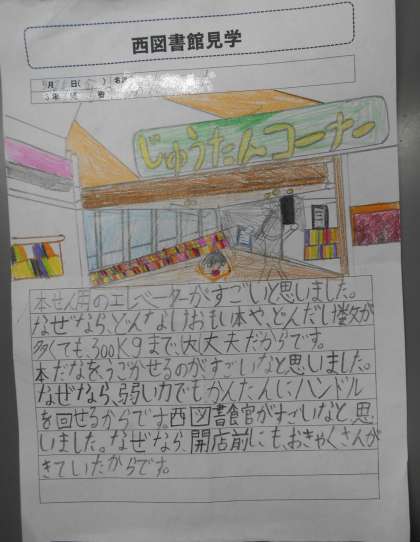 西図書館見学
月 日( ) 名
3年 組 番
じゅうたんコーナー
本せん用のエレベーターがすごいと思いました。
なぜなら、どんなにおもい本や、どんだけ数が
多くても、300kgまで、大丈夫だからです。
本だなをうごかせるのがすごいなと思いました。
なぜなら、弱い力でもかんたんにハンドル
を回せるからです。西図書館がすごいなと思
いました。なぜなら、開店前にも、おきゃくさんが
きていたからです。